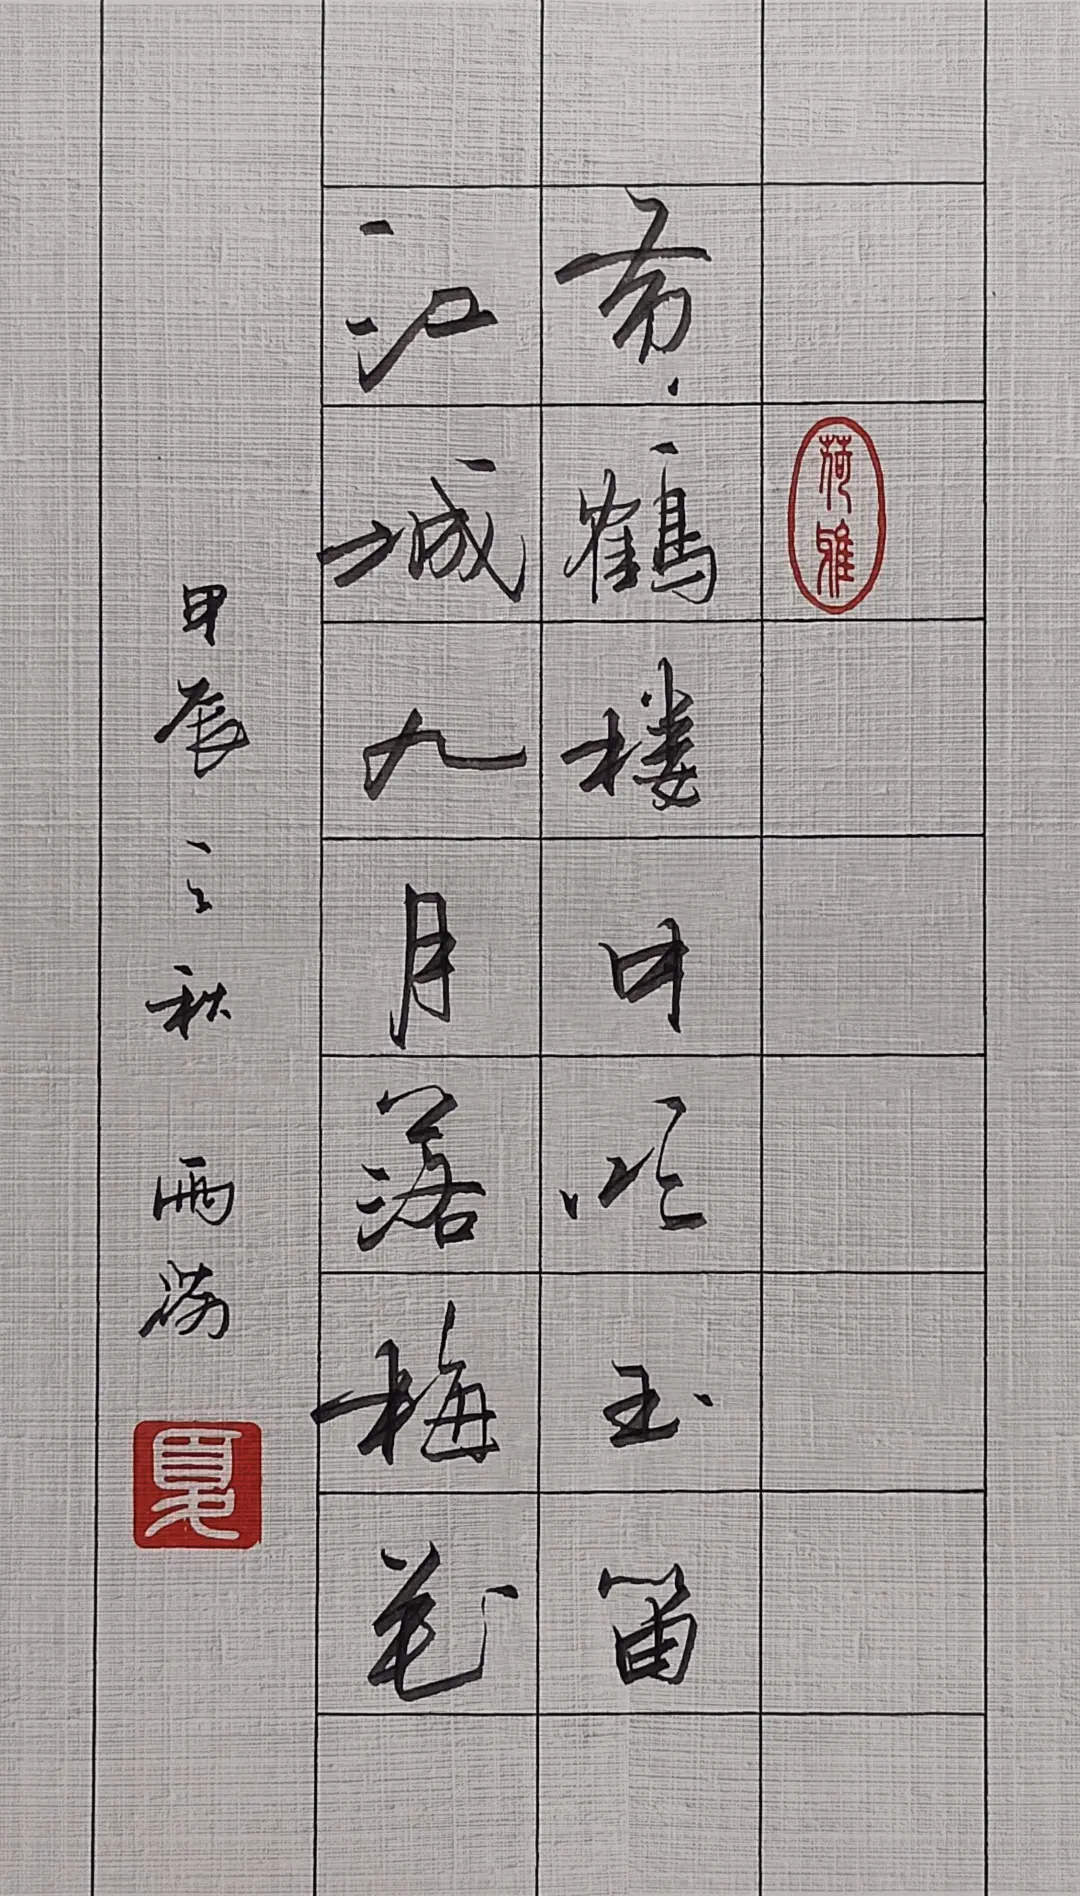 荷雅
黄鶴楼中吹玉笛
江城九月落梅花
甲辰之秋 雨荷
夏